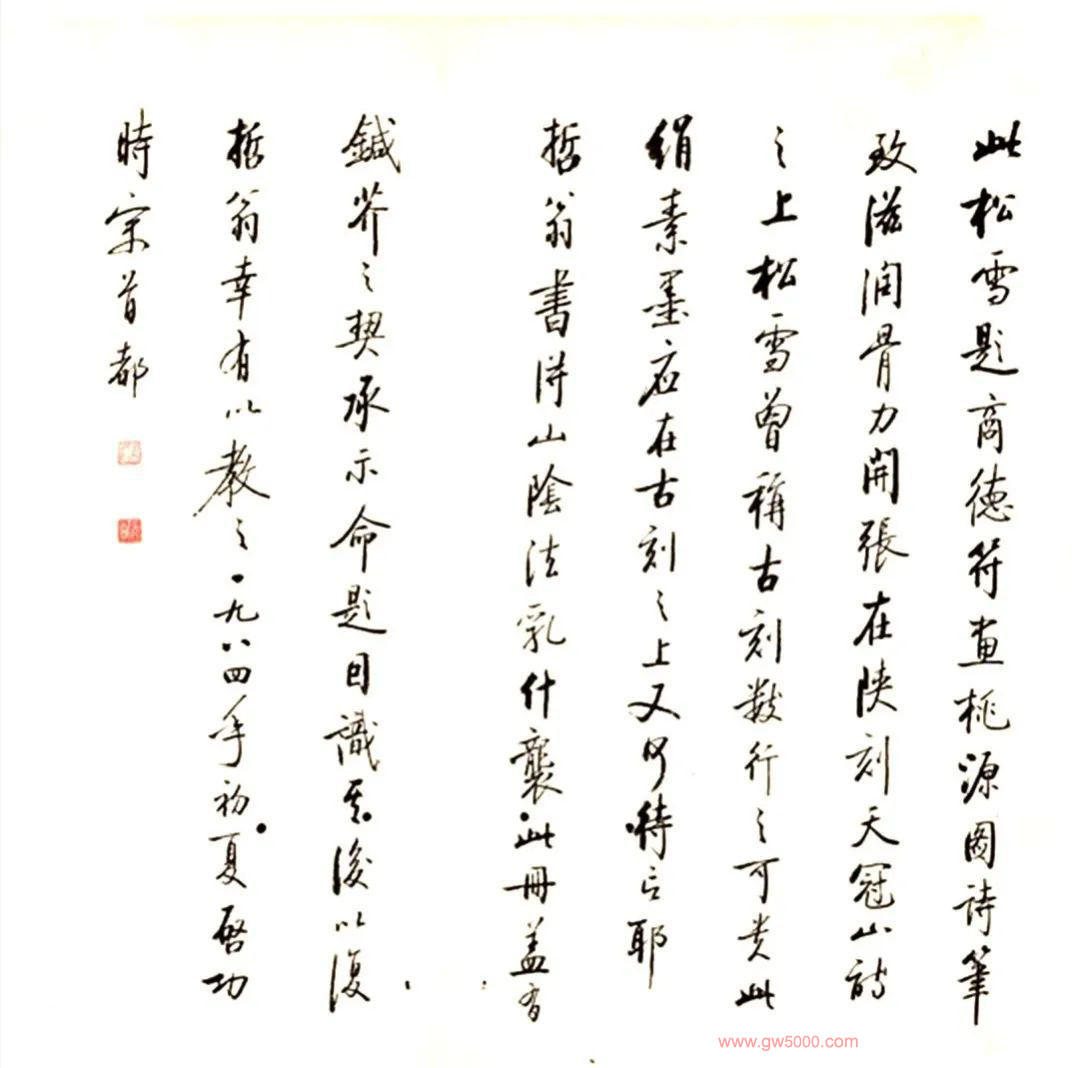 此松雪題商德符畫桃源圖詩筆
致滋潤骨力開張在陝刻天冠山詩
之上松雪曾稱古刻數行之可貴此
絹素墨跡在古刻之上又何待言耶
哲翁書得山陰法乳什襲此冊蓋有
鍼芥之契承示命題因識其後以復
哲翁幸有以教之一九八四年初夏啓功
時客首都
www.gw5000.com